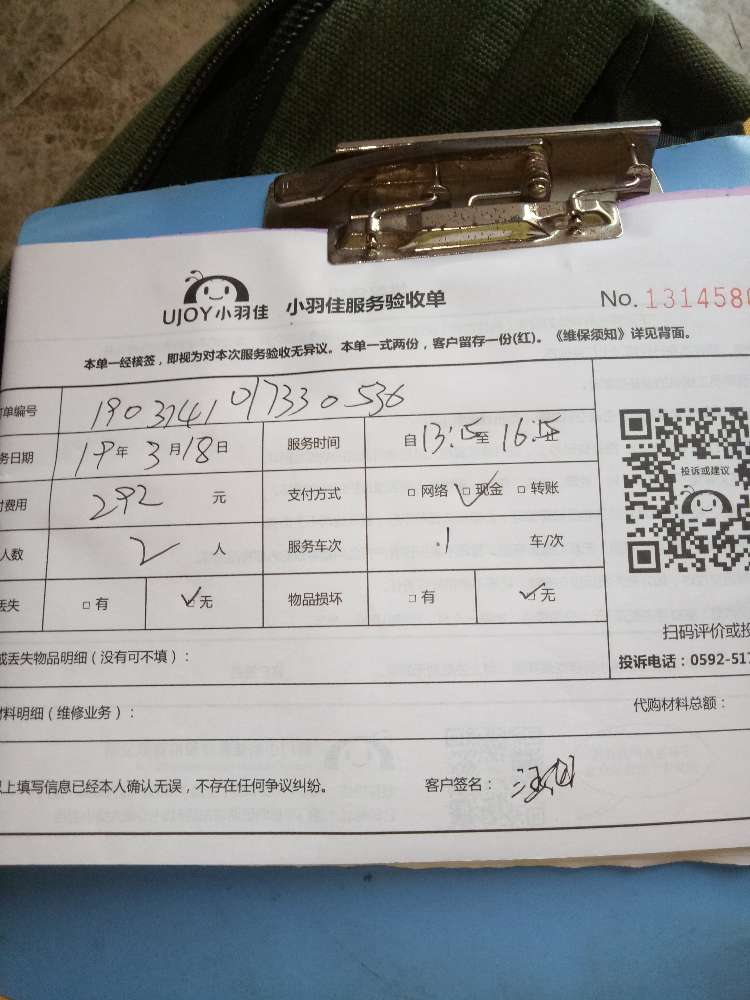 UJOY小羽佳 小羽佳服务验收单 No. 131458
本单一经核签，即视为对本次服务验收无异议。本单一式两份，客户留存一份(红)。《维保须知》详见背面。
单编号 1903141017330536
务日期 19年 3月18日 服务时间 自13:15至16:15止
付费用 292 元 支付方式 □网络 ☑现金 □转账
人数 2 人 服务车次 1 车/次
丢失 □有 ☑无 物品损坏 □有 ☑无
投诉或建议
扫码评价或投
或丢失物品明细（没有可不填）：
投诉电话：0592-517
材料明细（维修业务）：
代购材料总额：
以上填写信息已经本人确认无误，不存在任何争议纠纷。 客户签名：